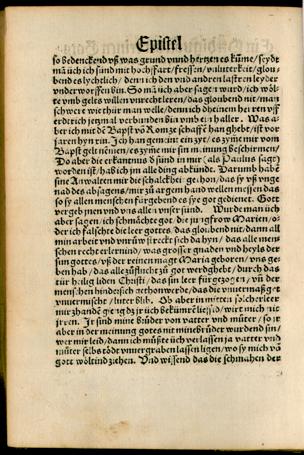 Epistel
so bedenckend vß was grund vnnd hertzen es kume / seyd
mā üch ich sund mit hochffart / fressen / vnluterkeit / glou
bend es lychtlich / denn ich den vnd andren lastren leyder
vnderworffen bin. So mā üch aber sagen wurd / ich wöl
te vmb gelts willen vnrecht leren / das gloubend nit / man
schwere wie thür man welle / denn ich dheinem herren vff
erdtrich jetzmal verbunden bin vmb ein haller. Was a
ber ich mit dē Bapst vō Rom ze schaffē han ghebt / ist vor
jaren hyn rin. Jch han gemeint ein zyt / es zyme mir vom
Bapst gelt nēnen / es zyme mir sin meinung beschirmen /
Do aber die erkantnus d sünd in mir (als Paulus sagt)
worden ist / hab ich im alle ding abkündt. Darumb habē
sine Anwalten mir die schalckheit gethon / das sy vß vnge
nad des absagens / mir zü argem hand wellen messen das
so sy allen menschen fürgebend es sye gor gedienet. Gott
vergeb jnen vnd vns alle vnsre sünd. Wurde man üch
aber sagen / ich schmächte gor die jungfrow Marien / o=
der ich falschte die leer gottes / das gloubend nit / dann all
min arbeit vnd
schen recht erlernind / was grosser gnaden vnd heyls der
sun gottes / vß der reinen magt Maria geboren / vns ge=
ben hab / das alle züflucht zü gor werd ghebt / durch das
tür heilig liden Christi / das sin leer für gezogen / vn̄ der
menschen hindersich gethon werde / das die
vnuermischt / luter blib. Ob aber in mitten solcher leer
mir zhandē gieng dz ir üch bekümrē liessid / wirt mich nit
jrren. Jr sind mine brüder von vatter vnd müter / so jr
aber in der meinung gottes nit mine brüder wurdend sin /
wer mir leid / dann ich müßte üch verlassen ja vatter vnd
müter selbs tödt vnuergraben lassen ligen / wo sy mich vā
gott wöltind ziehen. Vnd wissend das die schmahen der